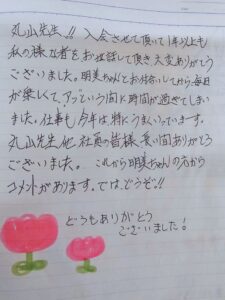 丸山先生!! 入会させて頂いて1年以上も
私の様な者をお世話して頂き大変ありがとう
ございました。明美ちゃんとお付合いしてから毎日
が楽しくて、アッという間に時間が過ぎてしまい
ました。仕事も今年は特にうまくいっています。
丸山先生、他社員の皆様、長い間ありがとう
ございました。 これから明美ちゃんの方から
コメントがあります。では、どうぞ!!
どうもありがとう
ございました!